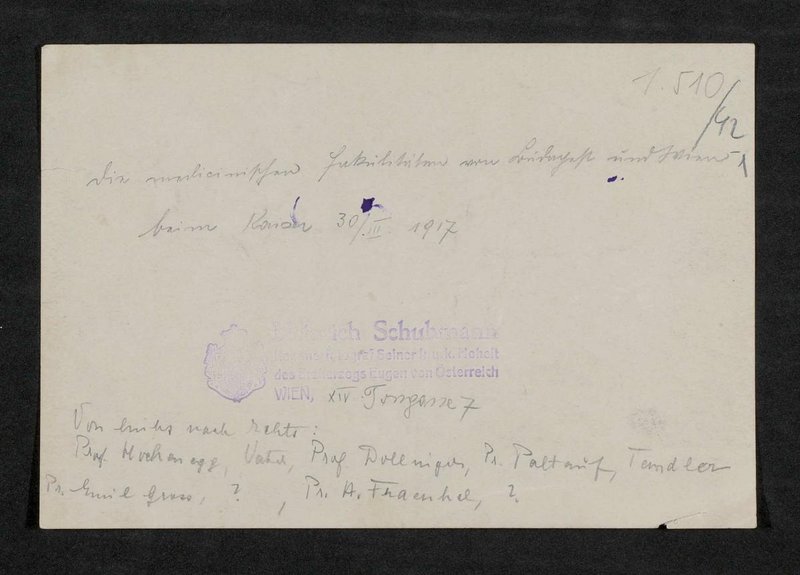 1.510/42
Die medicinischen Fakultäten von Budapest und Wien
beim Kaiser 30/III. 1917
Schuhmann
Seiner k. u. k. Hoheit
des Erzherzogs Eugen von Österreich
WIEN, XIV Torgasse 7
Von links nach rechts:
Prof. Hochenegg, Vater, Prof. Dollinger, Pr. Paltauf, Tandler
Pr. Emil Gross, ?, Pr. A. Fraenkel, ?